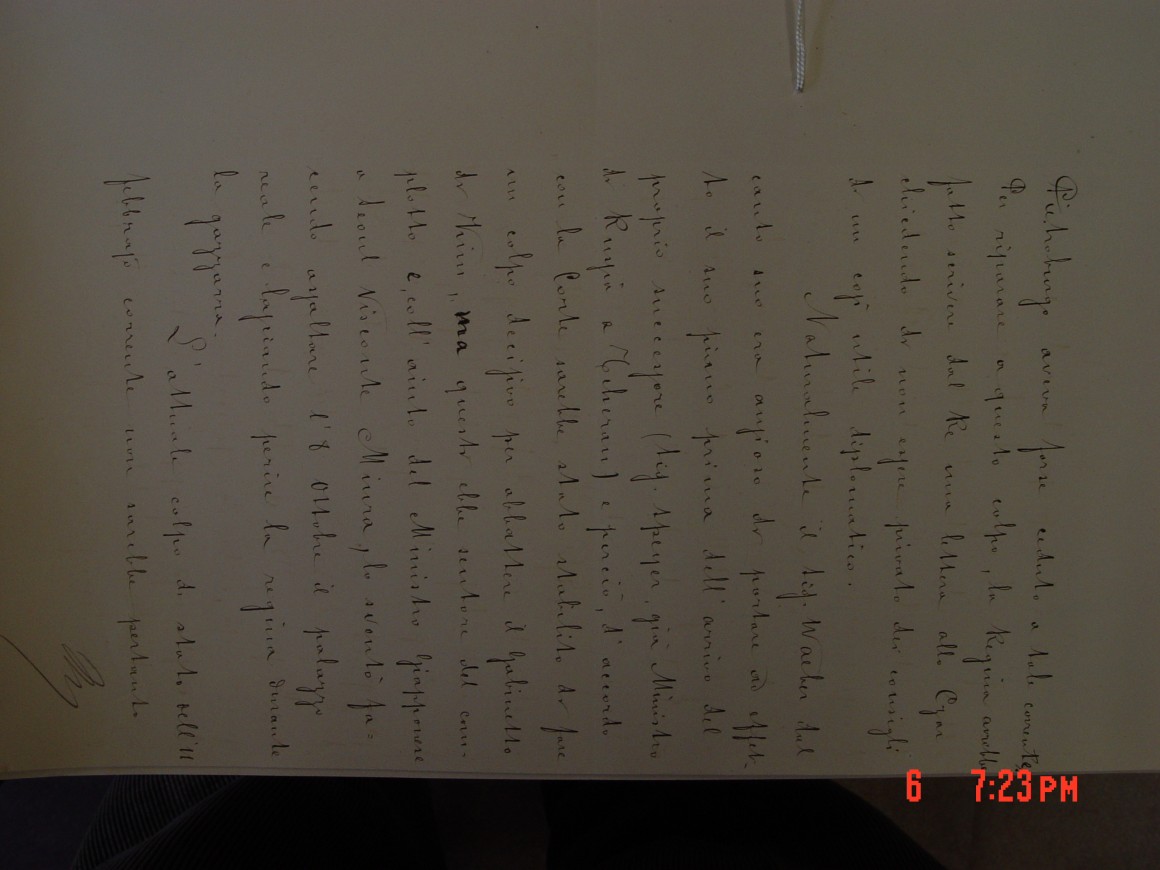 Pietroburgo aveva forse ceduto a tale corrente.
Per riparare a questo colpo, la Regina avrebbe
fatto scrivere dal Re una lettera allo Czar
chiedendo di non essere privato dei consigli
di un così utile diplomatico.
Naturalmente il Sig. Waeber dal
canto suo era ansioso di portare ad effet-
to il suo piano prima dell'arrivo del
proprio successore (Sig. Speyer, già Ministro
di Russia a Teheran) e perciò, d'accordo
con la Corte sarebbe stato stabilito di fare
un colpo decisivo per abbattere il Gabinetto
di Kim, ma questi ebbe sentore del com-
plotto e, coll'aiuto del Ministro Giapponese
a Seoul Visconte Miura, lo sventò fa=
cendo assaltare l'8 Ottobre il palazzo
reale e lasciando perire la regina durante
la gazzarra.
L'attuale colpo di stato dell'11
febbrajo corrente non sarebbe pertanto
6 7:23PM